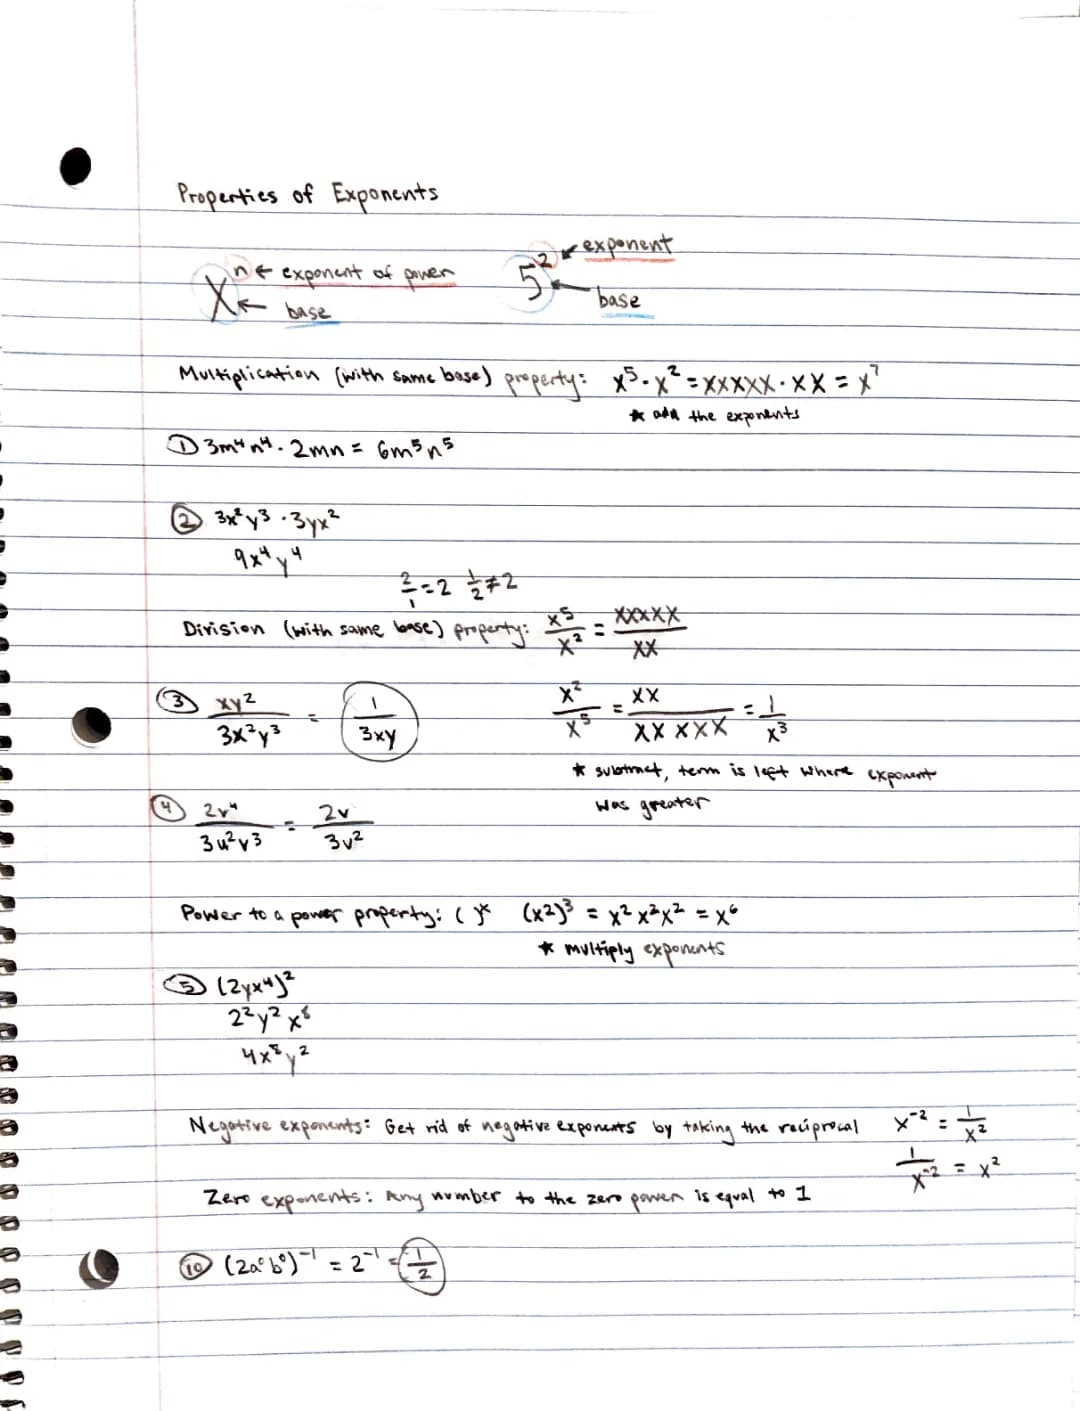 Properties of Exponents
xⁿ ← exponent of power 5² ← exponent
← base ← base
Multiplication (with same base) property: x⁵ · x² = xxxxx · xx = x⁷
* add the exponents
① 3m⁴n⁴ · 2mn = 6m⁵n⁵
② 3x²y³ · 3yx²
9x⁴y⁴
2/1 = 2 1/2 ≠ 2
Division (with same base) property: x⁵/x² = xxxxx/xx
③ xy²/3x²y³ = 1/3xy x²/x⁵ = xx/xxxxx = 1/x³
* subtract, term is left where exponent
was greater
④ 2v⁴/3u²v³ = 2v/3v²
Power to a power property: ( )ˣ (x²)³ = x² x² x² = x⁶
* multiply exponents
⑤ (2yx⁴)²
2²y²x⁸
4x⁸y²
Negative exponents: Get rid of negative exponents by taking the reciprocal x⁻² = 1/x²
1/x⁻² = x²
Zero exponents: Any number to the zero power is equal to 1
⑩ (2a⁰b⁰)⁻¹ = 2⁻¹ = 1/2